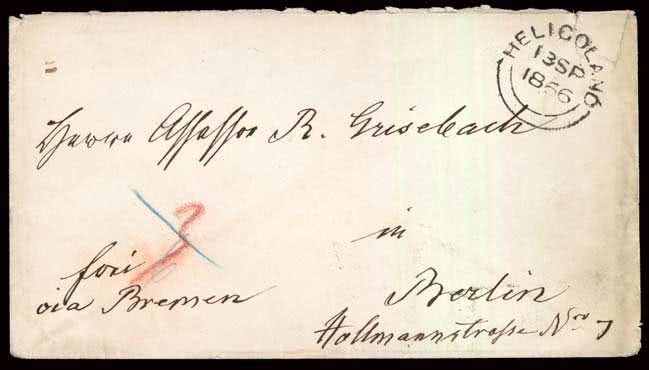 HELIGOLAND
13SP
1866
Herrn Assessor R. Grisebach
3
in
frei
via Bremen
Berlin
Hollmannstrasse Nro 7